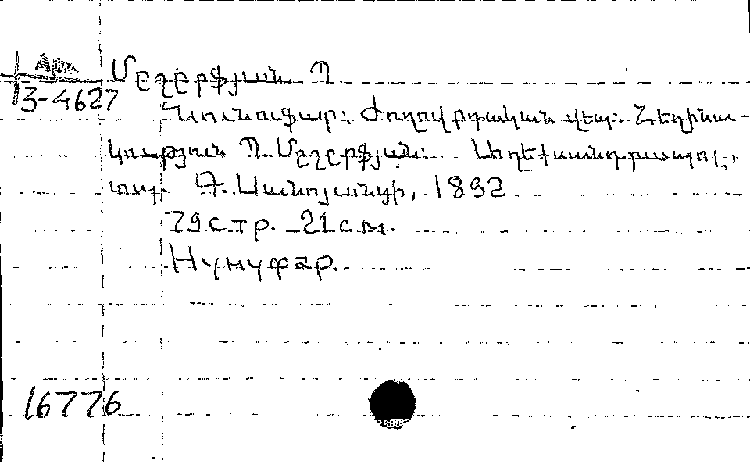 Арм
3-4627
Մըշըրֆյան Պ
Նունուֆար: Ժողովրդական վեպ: Հեղինա-
կություն Պ. Մըշըրֆյան: Աղեքսանդրապոլ,
տպ. Գ. Սանոյանցի, 1892
79 стр. 21 см.
Нунуфар.
16776